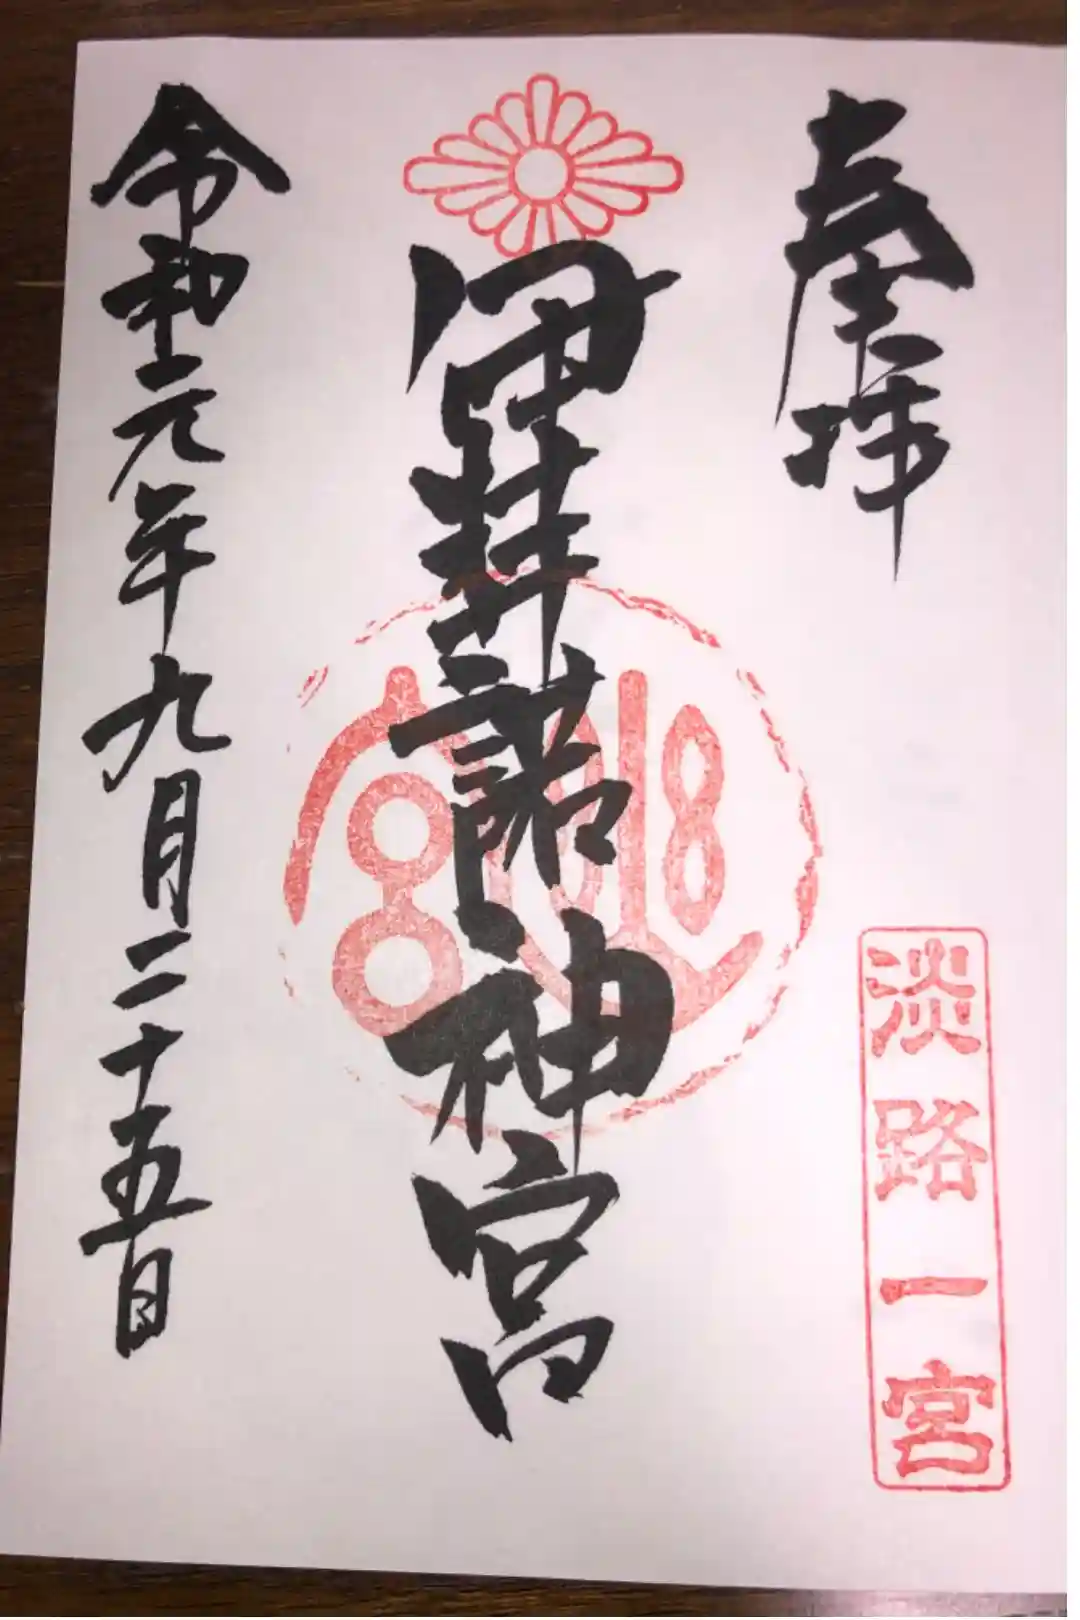 奉拝
淡路一宮
伊弉諾神宮
令和元年九月二十五日